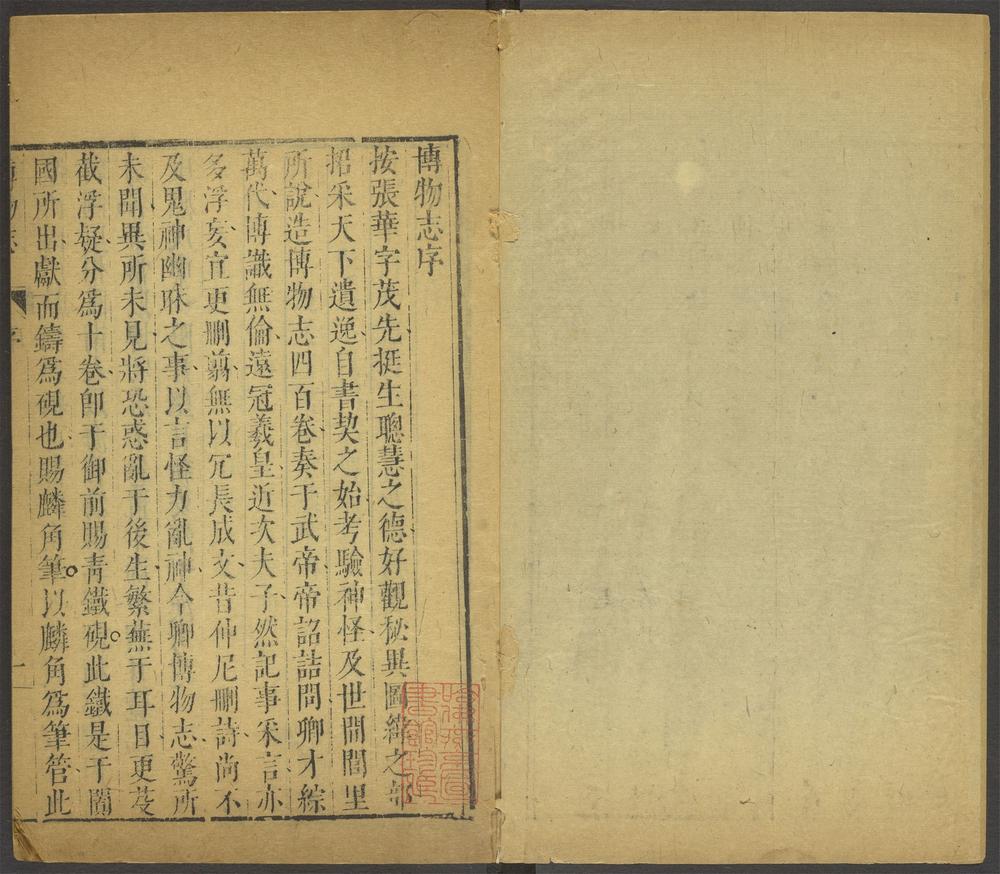 博物志序
按張華字茂先挺生聰慧之德好觀秘異圖緯之部
招采天下遺逸自書契之始考驗神怪及世間閭里
所說造博物志四百卷奏于武帝帝詔詰問卿才綜
萬代博識無倫遠冠羲皇近次夫子然記事采言亦
多浮妄宜更刪翦無以冗長成文昔仲尼刪詩尚不
及鬼神幽昧之事以言怪力亂神今卿博物志驚所
未聞異所未見將恐惑亂于後生繁蕪于耳目更芟
截浮疑分爲十卷卽于御前賜青鐵硯此鐵是于闐
國所出獻而鑄爲硯也賜麟角筆以麟角爲筆管此
博物志 序 一